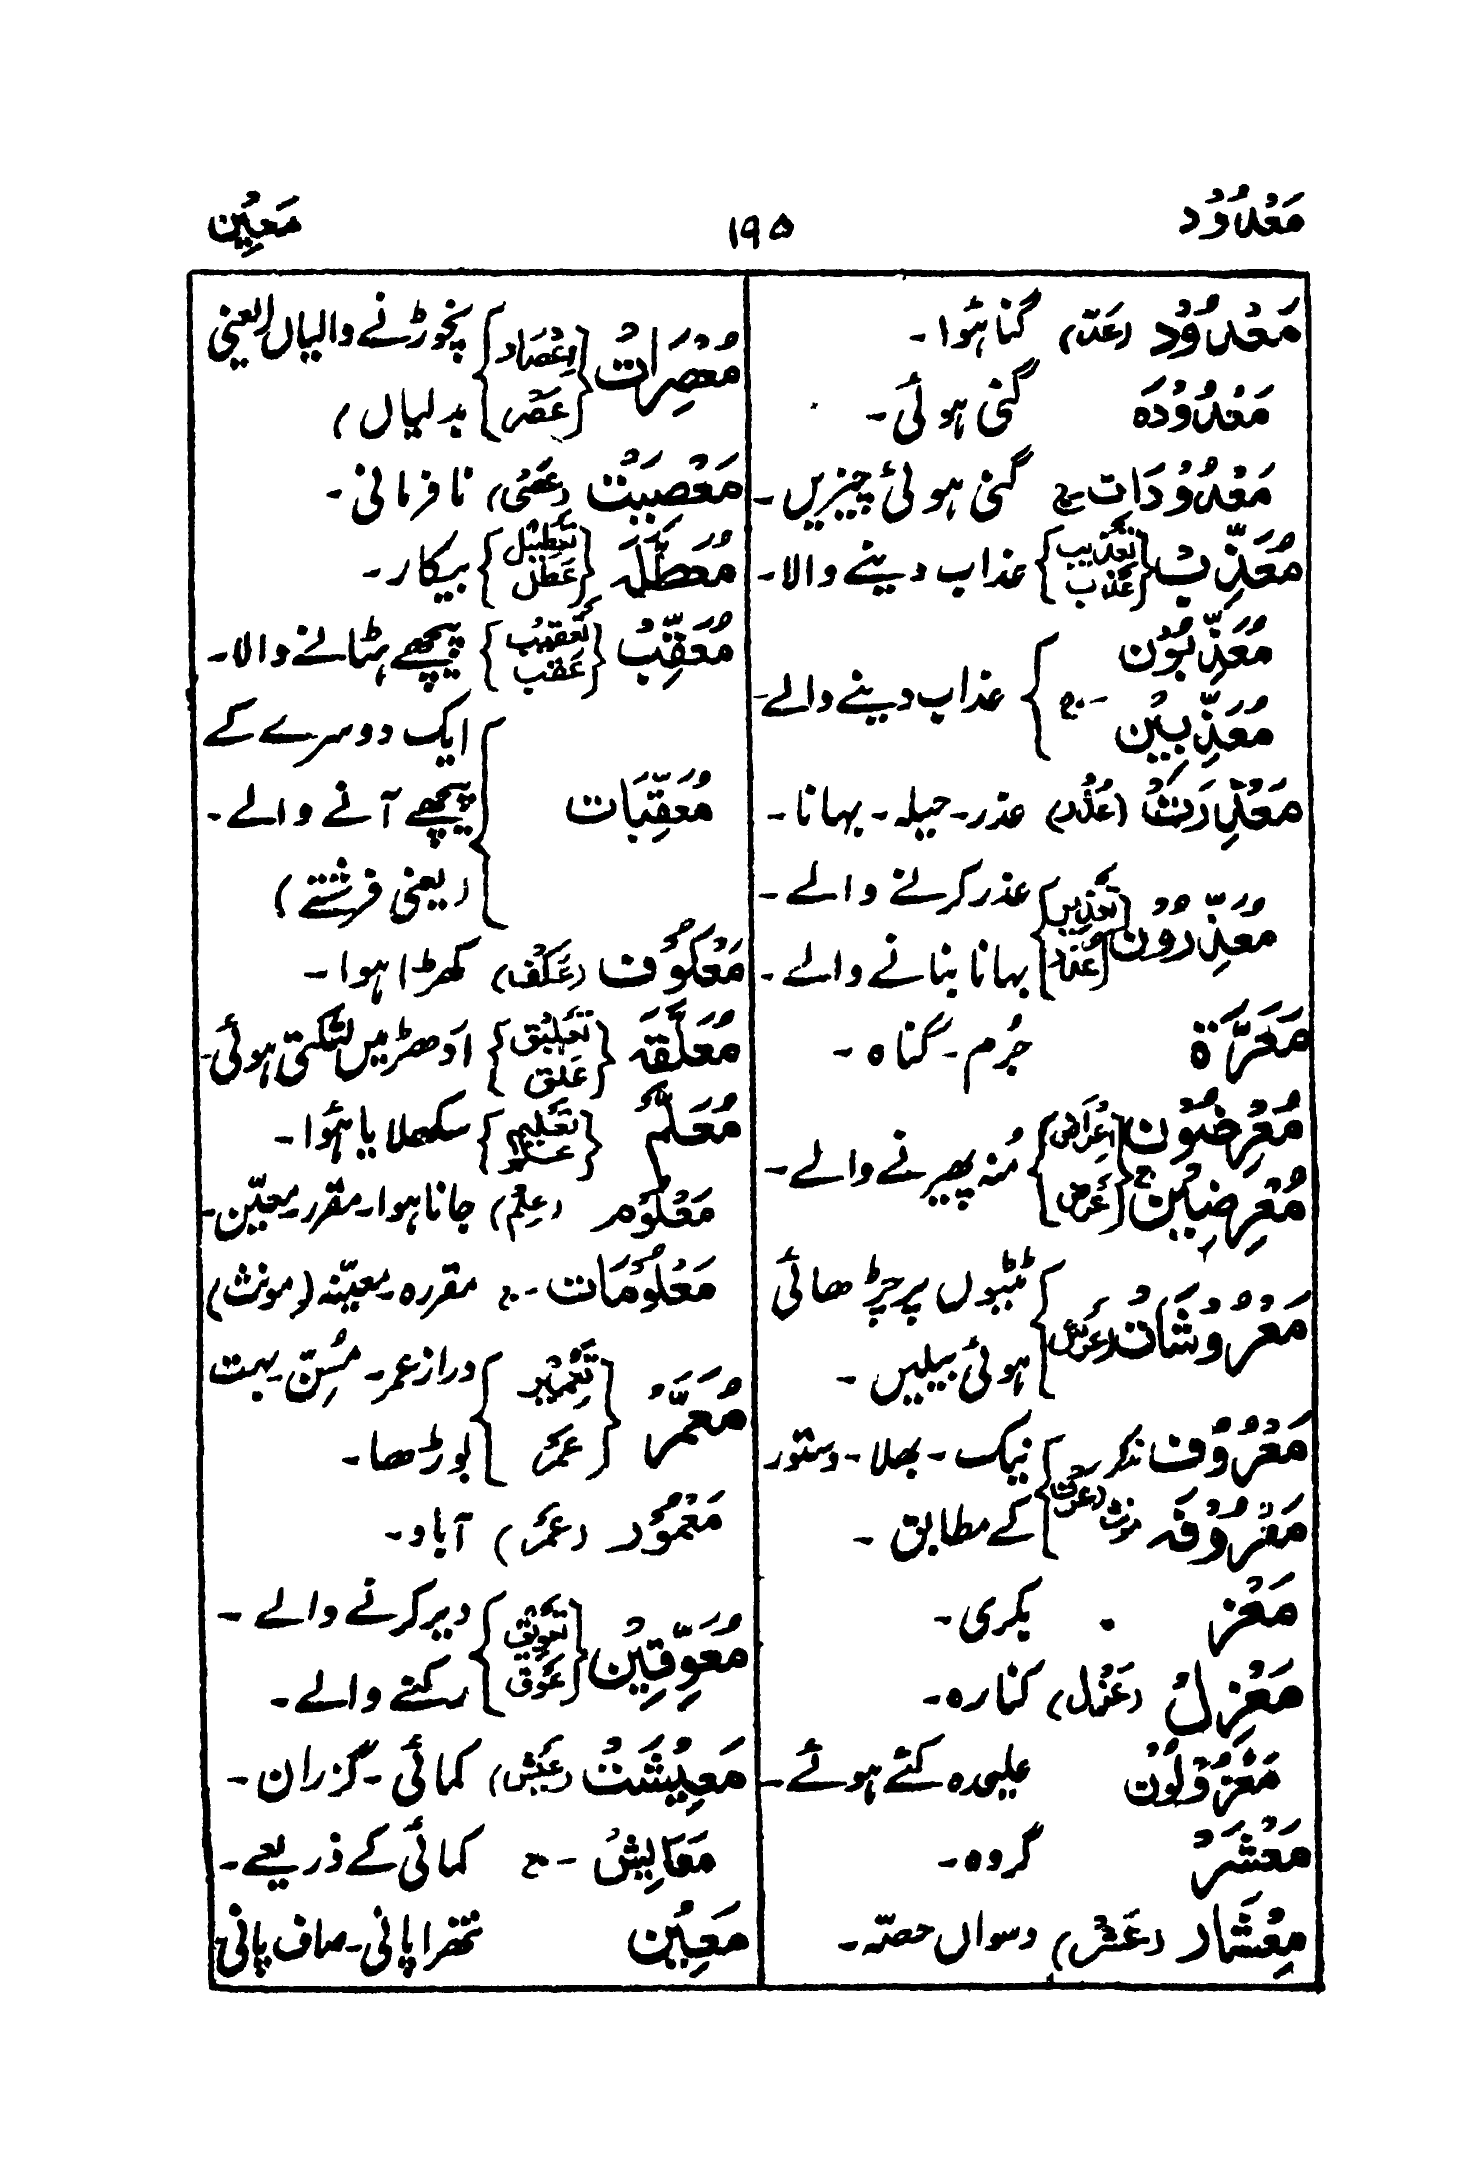 مَعْدُوْد ۱۹۵ مَعِیْن
مَعْدُوْد (عَدّ) گنا ہُوا۔
مَعْدُوْدَہ گنی ہوئی۔
مَعْدُوْدَات ج گنی ہوئی چیزیں۔
مُعَذِّبْ {تَعْذِیب عَذَب} عذاب دینے والا۔
مُعَذِّبُوْن
مُعَذِّبِیْن ۔ج } عذاب دینے والے۔
مَعْذِرَتْ (عُذْر) عذر۔ حیلہ۔ بہانا۔
مُعَذِّرُوْن {تَعْذِیر عُذْر} عذر کرنے والے۔
بہانا بنانے والے۔
مَعَرَّة جُرم۔ گناہ۔
مُعْرِضُوْن
مُعْرِضِیْن ج {اِعْرَاض عَرض} مُنہ پھیرنے والے۔
مَعْرُوْشَاتْ (عَرْش) ٹٹیوں پر چڑھائی
ہوئی بیلیں۔
مَعْرُوْف مذکر نیک۔ بھلا۔ دستور
مَعْرُوْفَہ مونث (عُرْف) کے مطابق۔
مَعْز بکری۔
مَعْزِلْ (عَزْل) کنارہ۔
مَعْزُوْلُوْن علیحدہ کئے ہوئے۔
مَعْشَرْ گروہ۔
مِعْشَار (عَشْر) دسواں حصّہ۔
مُعْصِرَاتْ {اِعْصَاد عَصْر} نچوڑنے والیاں (یعنی
بدلیاں)
مَعْصِیَتْ (عَصٰی) نافرمانی۔
مُعَطَّلَہ {تَعْطِیْل عَطْل} بیکار۔
مُعَقِّبْ {تَعْقِیْب عَقْب} پیچھے ہٹانے والا۔
ایک دوسرے کے
مُعَقِّبَات پیچھے آنے والے۔
(یعنی فرشتے)
مَعْکُوْف (عَکْف) کھڑا ہوا۔
مُعَلَّقَہ {تَعْلِیْق عَلق} ادھڑ میں لٹکتی ہوئی۔
مُعَلَّمْ {تَعْلِیْم عِلم} سکھلایا ہُوا۔
مَعْلُوْم (عِلْم) جانا ہوا۔ مقرر۔ معیّن۔
مَعْلُوْمَات ۔ج مقررہ۔ معیّنہ (مونث)
مُعَمَّرْ {تَعْمِیْر عمر} دراز عمر۔ مُسِنّ۔ بہت
بوڑھا۔
مَعْمُوْر (عمر) آباد۔
مُعَوِّقِیْن {تَعْوِیْق عَوْق} دیر کرنے والے۔
رکنے والے۔
مَعِیْشَتْ (عَیْش) کمائی۔ گزران۔
مَعَایِشْ ۔ ج کمائی کے ذریعے۔
مَعِیْن نتھرا پانی۔ صاف پانی